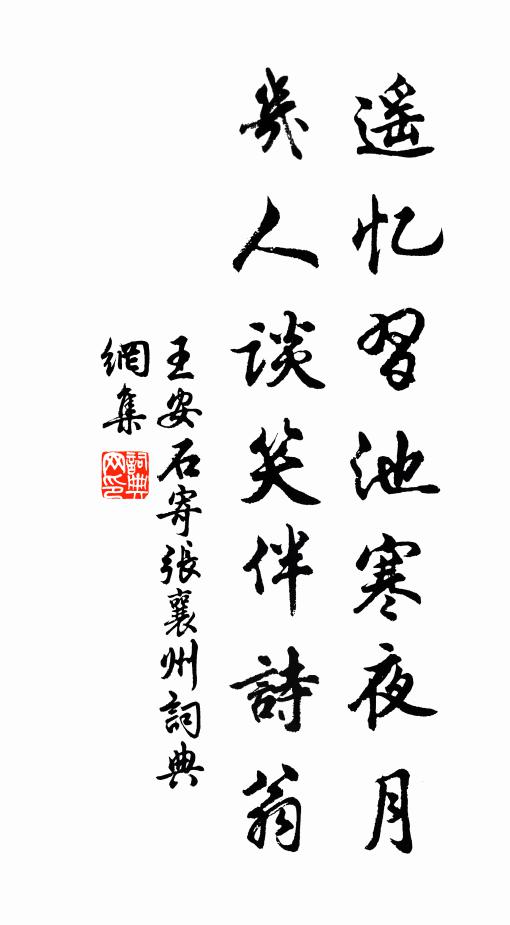 遥忆習池寒夜月
幾人談笑伴詩翁
王安石寄張襄州詞典
網集
詞典
网印